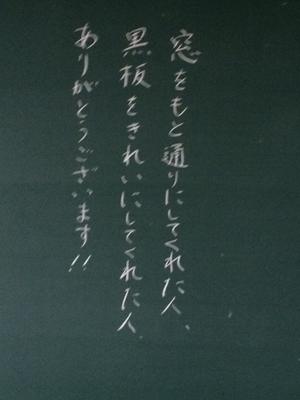 窓をもと通りにしてくれた人、
黒板をきれいにしてくれた人
ありがとうございます!!